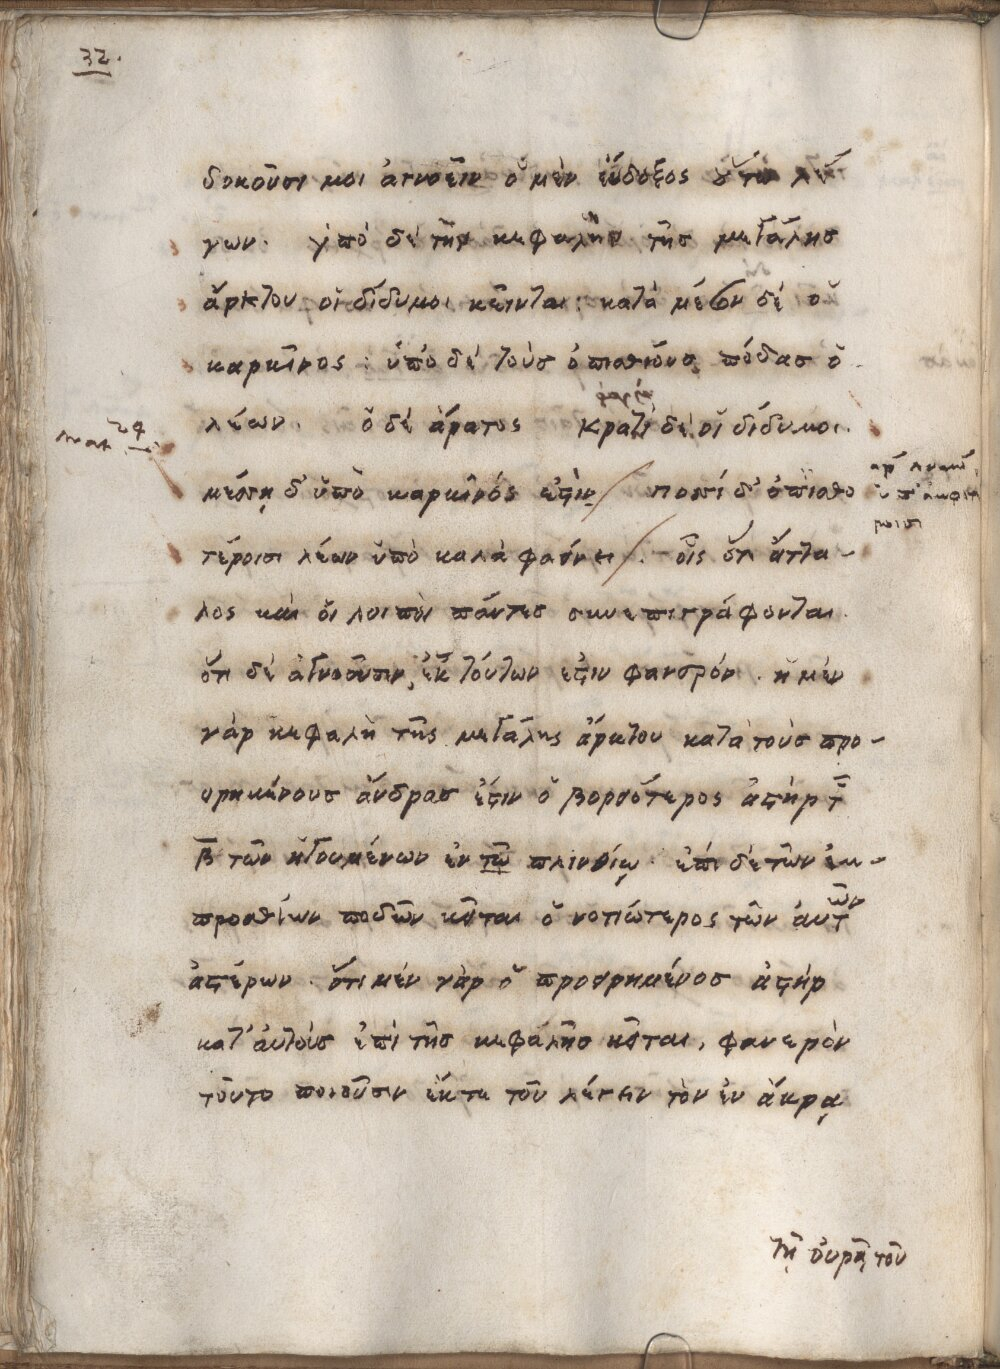 32.
δοκοῦσι μοι ἀγνοεῖν ὁ μὲν εὔδοξος οὕτω λέ
γων. ὑπὸ δὲ τὴν κεφαλὴν τῆς μεγάλης
ἄρκτου οἱ δίδυμοι κεῖνται· κατὰ μέσον δὲ ὁ
καρκῖνος : ὑπὸ δὲ τοὺς ὀπισθίους πόδας ὁ
λέων. ὁ δὲ ἄρατος κρατὶ δὲ οἱ δίδυμοι.
μέσῃ δ' ὑπὸ καρκῖνός ἐστιν / ποσὶ δ' ὀπισθο
τέροισι λέων ὑπὸ καλὰ φαείνει /. οἷς ὅτι ἄττα-
λος καὶ οἱ λοιποὶ πάντες συνεπιγράφονται.
ὅτι δὲ ἀγνοοῦσιν, ἐκ τούτων ἐστιν φανερόν. ἡ μὲν
γὰρ κεφαλὴ τῆς μεγάλης ἄρκτου κατὰ τοὺς προ-
ειρημένους ἄνδρας ἐστιν ὁ βορειότερος ἀστὴρ τ
β τῶν ἡγουμένων ἐν τῷ πλινθίῳ. ἐπὶ δὲ τῶν ἐμ-
προσθίων ποδῶν κεῖται ὁ νοτιώτερος τῶν αὐτῶν
ἀστέρων. ὅτι μὲν γὰρ ὁ προειρημένος ἀστὴρ
κατ' αὐτοὺς ἐπὶ τῆς κεφαλῆς κεῖται, φανερὸν
τοῦτο ποιοῦσιν ἔκ τε τοῦ λέγειν τὸν ἐν ἄκρᾳ
τῇ οὐρᾷ τοῦ